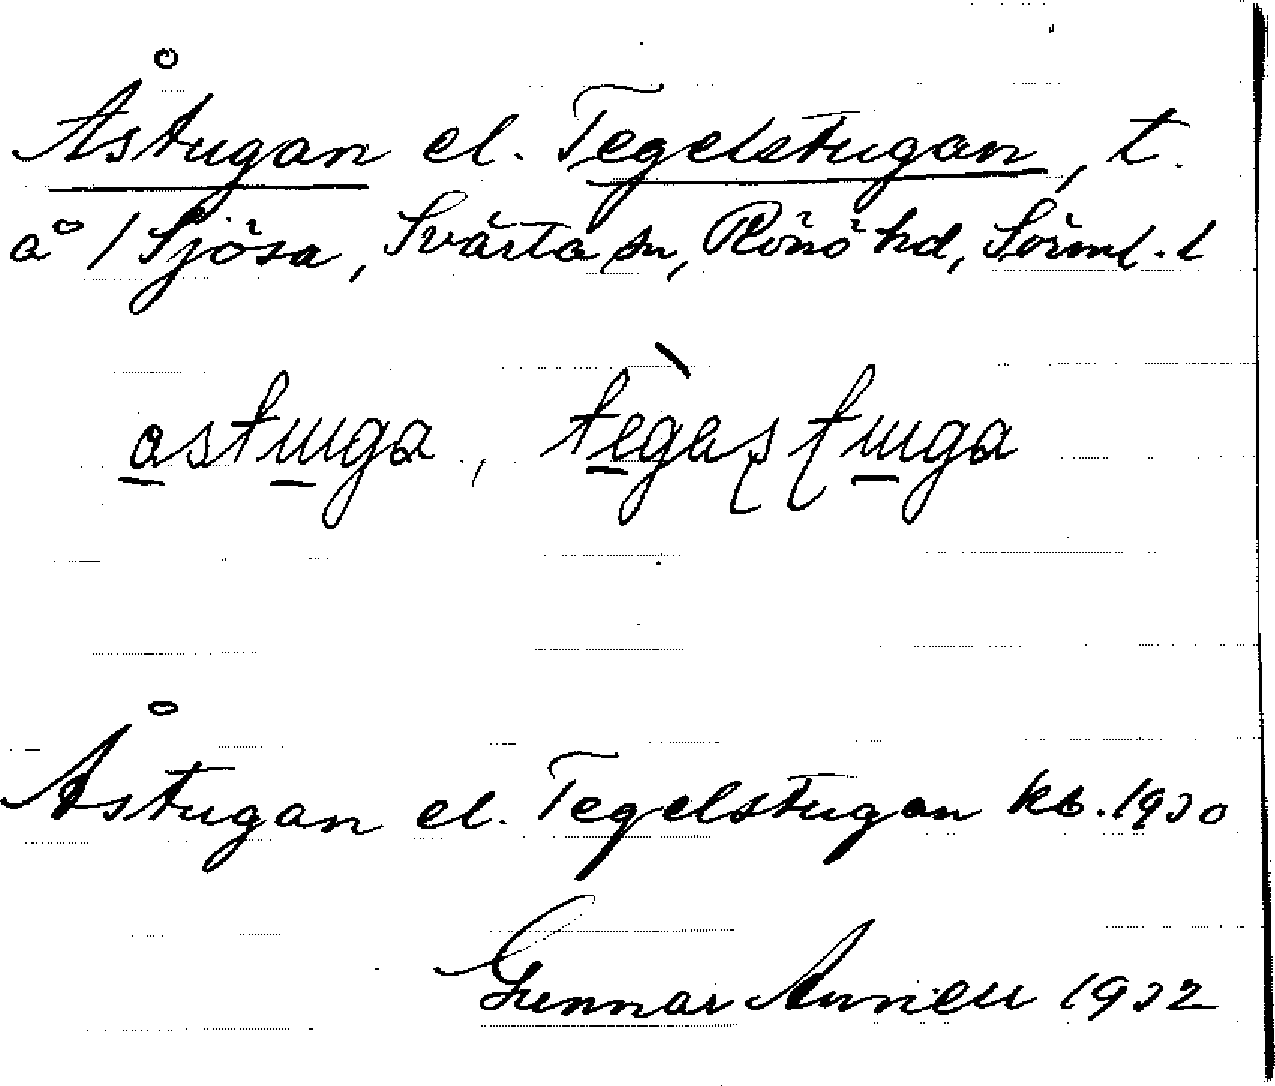 Åstugan el. Tegelstugan, t.
å /Sjösa, Svärta sn, Rönö hd, Sörml. l
astuga, tègaştuga
Åstugan el. Tegelstugan kb. 1930
Gunnar 1932